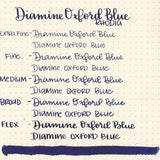 Diamine Oxford Blue
RHODIA
EXTRA FINE - Diamine Oxford Blue
DIAMINE OXFORD BLUE
FINE - Diamine Oxford Blue
DIAMINE OXFORD BLUE
MEDIUM - Diamine Oxford Blue
DIAMINE OXFORD BLUE
BROAD - Diamine Oxford Blue
DIAMINE OXFORD BLUE
FLEX - Diamine Oxford Blue
DIAMINE OXFORD BLUE